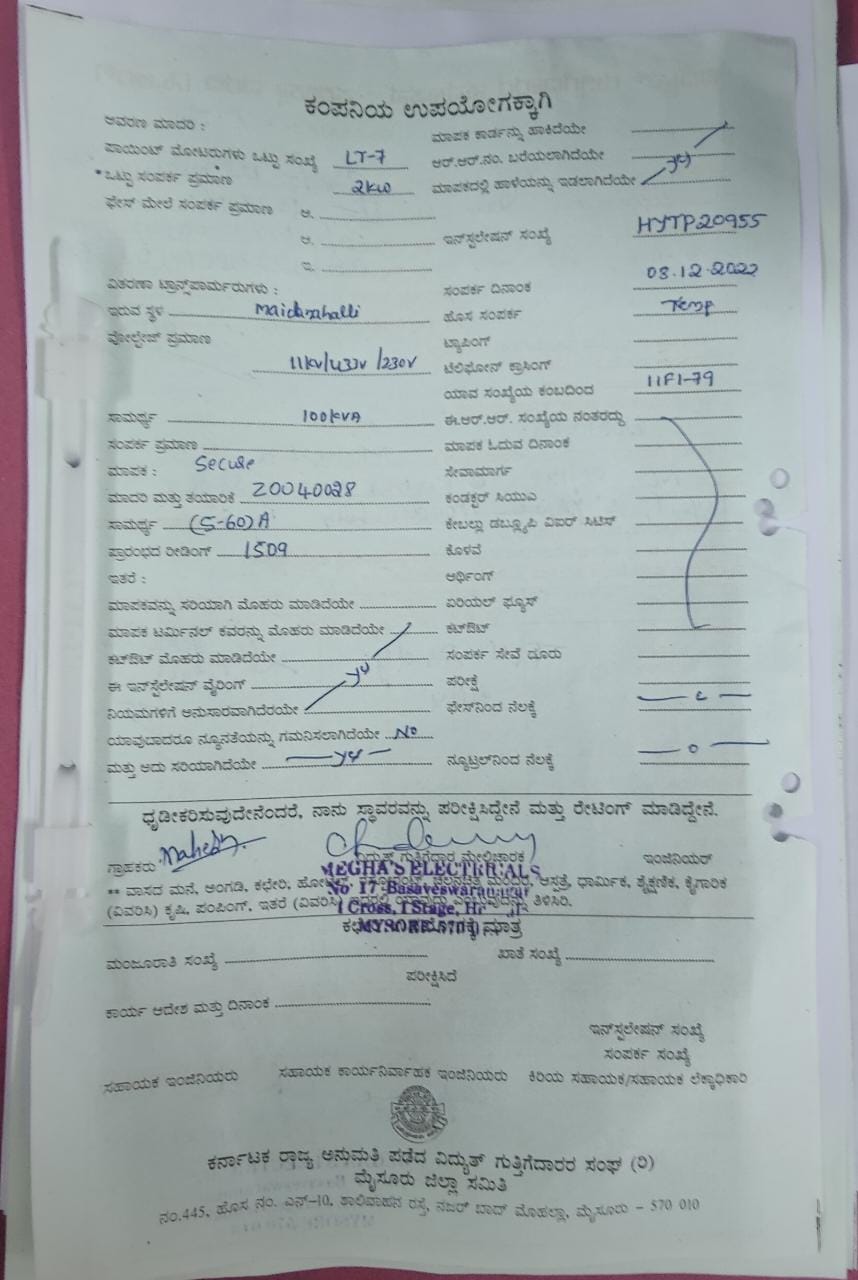 ಕಂಪನಿಯ ಉಪಯೋಗಕ್ಕಾಗಿ
ಆವರಣ ಮಾದರಿ : ಮಾಪಕ ಕಾರ್ಡನ್ನು ಹಾಕಿದೆಯೇ
ಪಾಯಿಂಟ್ ಮೋಟರುಗಳು ಒಟ್ಟು ಸಂಖ್ಯೆ LT-7 ಆರ್.ಆರ್.ನಂ. ಬರೆಯಲಾಗಿದೆಯೇ
*ಒಟ್ಟು ಸಂಪರ್ಕ ಪ್ರಮಾಣ 2KW ಮಾಪಕದಲ್ಲಿ ಹಾಳೆಯನ್ನು ಇಡಲಾಗಿದೆಯೇ
ಫೇಸ್ ಮೇಲೆ ಸಂಪರ್ಕ ಪ್ರಮಾಣ ಅ.
ಆ. ಇನ್‌ಸ್ಟಲೇಷನ್ ಸಂಖ್ಯೆ HYTP20955
ಇ.
ವಿತರಣಾ ಟ್ರಾನ್ಸ್‌ಫಾರ್ಮರುಗಳು : ಸಂಪರ್ಕ ದಿನಾಂಕ 03.12.2022
ಇರುವ ಸ್ಥಳ ಹೊಸ ಸಂಪರ್ಕ Temp
ವೋಲ್ಟೇಜ್ ಪ್ರಮಾಣ ಟ್ಯಾಪಿಂಗ್
11KV/433V /230V ಟೆಲಿಫೋನ್ ಕ್ರಾಸಿಂಗ್
ಯಾವ ಸಂಖ್ಯೆಯ ಕಂಬದಿಂದ 11F1-79
ಸಾಮರ್ಥ್ಯ 100KVA ಈ.ಆರ್.ಆರ್. ಸಂಖ್ಯೆಯ ನಂತರದ್ದು
ಸಂಪರ್ಕ ಪ್ರಮಾಣ ಮಾಪಕ ಓದುವ ದಿನಾಂಕ
ಮಾಪಕ : Secure ಸೇವಾಮಾರ್ಗ
ಮಾದರಿ ಮತ್ತು ತಯಾರಿಕೆ 20040028 ಕಂಡಕ್ಟರ್ ಸಿಯುಎ
ಸಾಮರ್ಥ್ಯ (5-60)A ಕೇಬಲ್ಲು ಡಬ್ಲ್ಯೂಪಿ ವಿಐಆರ್ ಸಿಟಿಸ್
ಪ್ರಾರಂಭದ ರೀಡಿಂಗ್ 1509 ಕೊಳವೆ
ಇತರೆ : ಅರ್ಥಿಂಗ್
ಮಾಪಕವನ್ನು ಸರಿಯಾಗಿ ಮೊಹರು ಮಾಡಿದೆಯೇ ಏರಿಯಲ್ ಫ್ಯೂಸ್
ಮಾಪಕ ಟರ್ಮಿನಲ್ ಕವರನ್ನು ಮೊಹರು ಮಾಡಿದೆಯೇ ಕಟ್‌ಔಟ್
ಕಟ್‌ಔಟ್ ಮೊಹರು ಮಾಡಿದೆಯೇ ಸಂಪರ್ಕ ಸೇವೆ ದೂರು
ಈ ಇನ್‌ಸ್ಟಲೇಷನ್ ವೈರಿಂಗ್ ಪರೀಕ್ಷೆ
ನಿಯಮಗಳಿಗೆ ಅನುಸಾರವಾಗಿದೆಯೇ ಫೇಸ್‌ನಿಂದ ನೆಲಕ್ಕೆ
ಯಾವುದಾದರೂ ನ್ಯೂನತೆಯನ್ನು ಗಮನಿಸಲಾಗಿದೆಯೇ No
ಮತ್ತು ಅದು ಸರಿಯಾಗಿದೆಯೇ ನ್ಯೂಟ್ರಲ್‌ನಿಂದ ನೆಲಕ್ಕೆ — 0 —
ಧೃಡೀಕರಿಸುವುದೇನೆಂದರೆ, ನಾನು ಸ್ಥಾವರವನ್ನು ಪರೀಕ್ಷಿಸಿದ್ದೇನೆ ಮತ್ತು ರೇಟಿಂಗ್ ಮಾಡಿದ್ದೇನೆ.
ಗ್ರಾಹಕರು Mahesh ವಿದ್ಯುತ್ ಗುತ್ತಿಗೆದಾರ ಮೇಲ್ವಿಚಾರಕ ಇಂಜಿನಿಯರ್
MEGHA'S ELECTRICALS
** ವಾಸದ ಮನೆ, ಅಂಗಡಿ, ಕಛೇರಿ, ಆಸ್ಪತ್ರೆ, ಧಾರ್ಮಿಕ, ಶೈಕ್ಷಣಿಕ, ಕೈಗಾರಿಕ
No 17 Basaveswaranagar
(ವಿವರಿಸಿ) ಕೃಷಿ, ಪಂಪಿಂಗ್, ಇತರೆ (ವಿವರಿಸಿ) ತಿಳಿಸಿರಿ.
I Cross, I Stage,
MYSORE
ಮಾತ್ರ
ಮಂಜೂರಾತಿ ಸಂಖ್ಯೆ ಖಾತೆ ಸಂಖ್ಯೆ
ಪರೀಕ್ಷಿಸಿದೆ
ಕಾರ್ಯ ಆದೇಶ ಮತ್ತು ದಿನಾಂಕ
ಇನ್‌ಸ್ಟಲೇಷನ್ ಸಂಖ್ಯೆ
ಸಂಪರ್ಕ ಸಂಖ್ಯೆ
ಸಹಾಯಕ ಇಂಜಿನಿಯರು ಸಹಾಯಕ ಕಾರ್ಯನಿರ್ವಾಹಕ ಇಂಜಿನಿಯರು ಕಿರಿಯ ಸಹಾಯಕ/ಸಹಾಯಕ ಲೆಕ್ಕಾಧಿಕಾರಿ
ಕರ್ನಾಟಕ ರಾಜ್ಯ ಅನುಮತಿ ಪಡೆದ ವಿದ್ಯುತ್ ಗುತ್ತಿಗೆದಾರರ ಸಂಘ (ರಿ)
ಮೈಸೂರು ಜಿಲ್ಲಾ ಸಮಿತಿ
ನಂ.445, ಹೊಸ ನಂ. ಎನ್-10, ಶಾಲಿವಾಹನ ರಸ್ತೆ, ನಜರ್ ಬಾದ್ ಮೊಹಲ್ಲಾ, ಮೈಸೂರು - 570 010